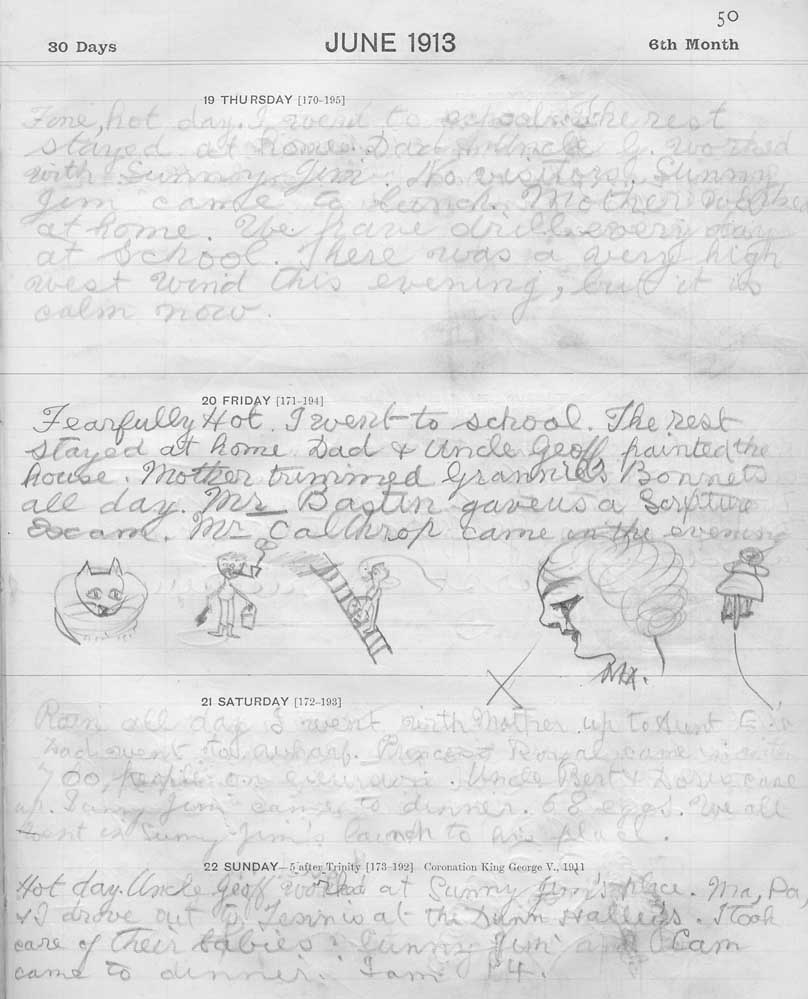 50
30 Days JUNE 1913 6th Month
19 THURSDAY [170-195]
Fine, hot day. I went to school. The rest
stayed at home. Dad & Uncle G. worked
with Sunny Jim. No visitors. Sunny
Jim came to lunch. Mother
at home. We have drill every day
at School. There was a very high
west wind this evening, but it is
calm now.
20 FRIDAY [171-194]
Fearfully Hot. I went to school. The rest
stayed at home Dad & Uncle Geoff painted the
house. Mother trimmed Grannie's Bonnets
all day. Mr Bastin gave us a Scripture
Exam. Mr Calthrop came in the evening
21 SATURDAY [172-193]
Rain all day I went with Mother up to Aunt
Dad went to wharf. Princess Royal came in with
700 people on excursion. Uncle Bert & Doris came
up. Sunny Jim came to dinner. 68 eggs. We all
went in Sunny Jim's launch to his place.
22 SUNDAY—5 after Trinity [173-192] Coronation King George V., 1911
Hot day. Uncle Geoff worked at Sunny Jim's place. Ma, Pa,
& I drove out to Tennis at the Dunn . I took
care of their babies. Sunny Jim and Cam
came to dinner. I am 14.